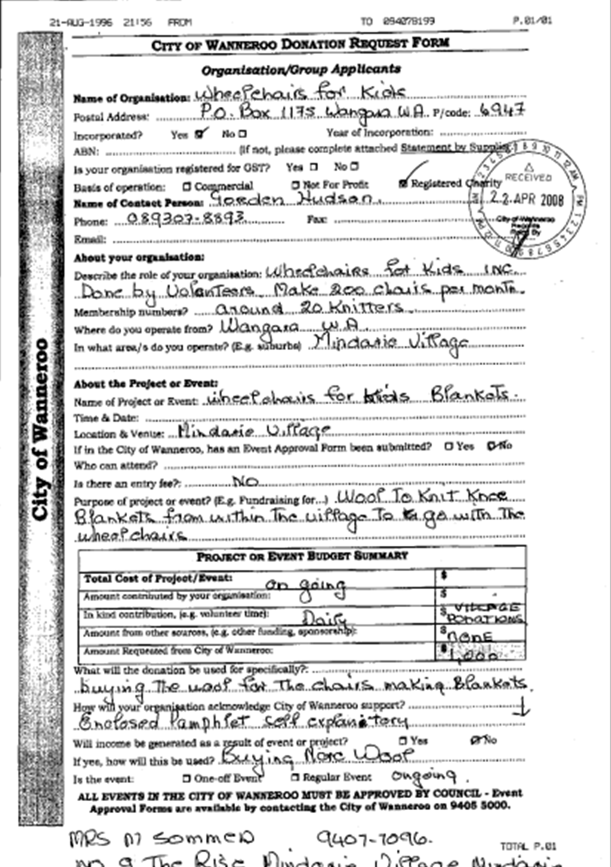 21-AUG-1996 21:56 FROM TO 094078199 P.01/01
CITY OF WANNEROO DONATION REQUEST FORM
Organisation/Group Applicants
Name of Organisation: Wheelchairs for Kids
Postal Address: P.O. Box 1175 Wangara W.A. P/code: 6947
Incorporated? Yes ☑ No ☐ Year of Incorporation:
ABN: (If not, please complete attached Statement by Supplier
Is your organisation registered for GST? Yes ☐ No ☐
Basis of operation: ☐ Commercial ☐ Not For Profit ☑ Registered Charity
RECEIVED
22 APR 2008
City of Wanneroo
Name of Contact Person: Gorden Hudson.
Phone: 089307-8893 Fax:
Email:
About your organisation:
Describe the role of your organisation: Wheelchairs for Kids INC.
Done by Volanteers. Make 200 chairs per month.
Membership numbers? around 20 Knitters.
Where do you operate from? Wangara W.A.
In what area/s do you operate? (E.g. suburbs) Mindarie Village
City of Wanneroo
About the Project or Event:
Name of Project or Event: wheelchairs for kids Blankets.
Time & Date:
Location & Venue: Mindarie Village
If in the City of Wanneroo, has an Event Approval Form been submitted? ☐ Yes ☑ No
Who can attend?
Is there an entry fee?: NO
Purpose of project or event? (E.g. Fundraising for...) Wool To Knit Knee
Blankets from within The village To go with The
wheelchairs
PROJECT OR EVENT BUDGET SUMMARY
Total Cost of Project/Event: on going $
Amount contributed by your organisation: $
In kind contribution, (e.g. volunteer time): Daily $ VILLAGE DONATIONS
Amount from other sources, (e.g. other funding, sponsorship): $ NONE
Amount Requested from City of Wanneroo: $ 1,000
What will the donation be used for specifically?:
buying The wool for The chairs making Blankets.
How will your organisation acknowledge City of Wanneroo support?
Enclosed Pamphlet self explanatory
Will income be generated as a result of event or project? ☐ Yes ☑ No
If yes, how will this be used? Buying More Wool
Is the event: ☐ One-off Event ☐ Regular Event ongoing.
ALL EVENTS IN THE CITY OF WANNEROO MUST BE APPROVED BY COUNCIL - Event
Approval Forms are available by contacting the City of Wanneroo on 9405 5000.
MRS M Sommen 9407-7096.
TOTAL P.01
9 The Rise Mindarie Village Mindarie